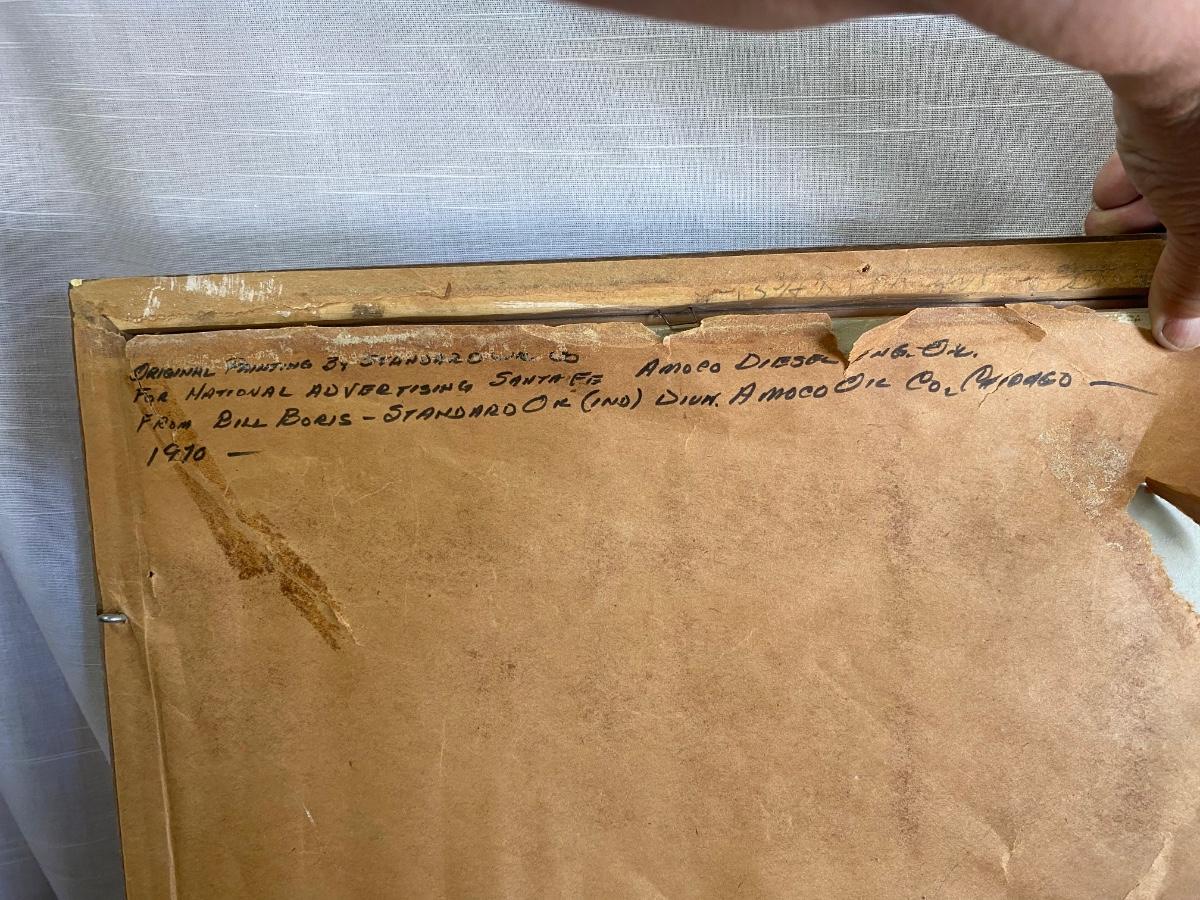 ORIGINAL PAINTING BY STANDARD OIL CO
FOR NATIONAL ADVERTISING SANTA FE AMOCO DIESEL ENG. OIL.
FROM BILL BORIS - STANDARD OIL (IND) DIVN. AMOCO OIL CO, CHICAGO —
1970 —